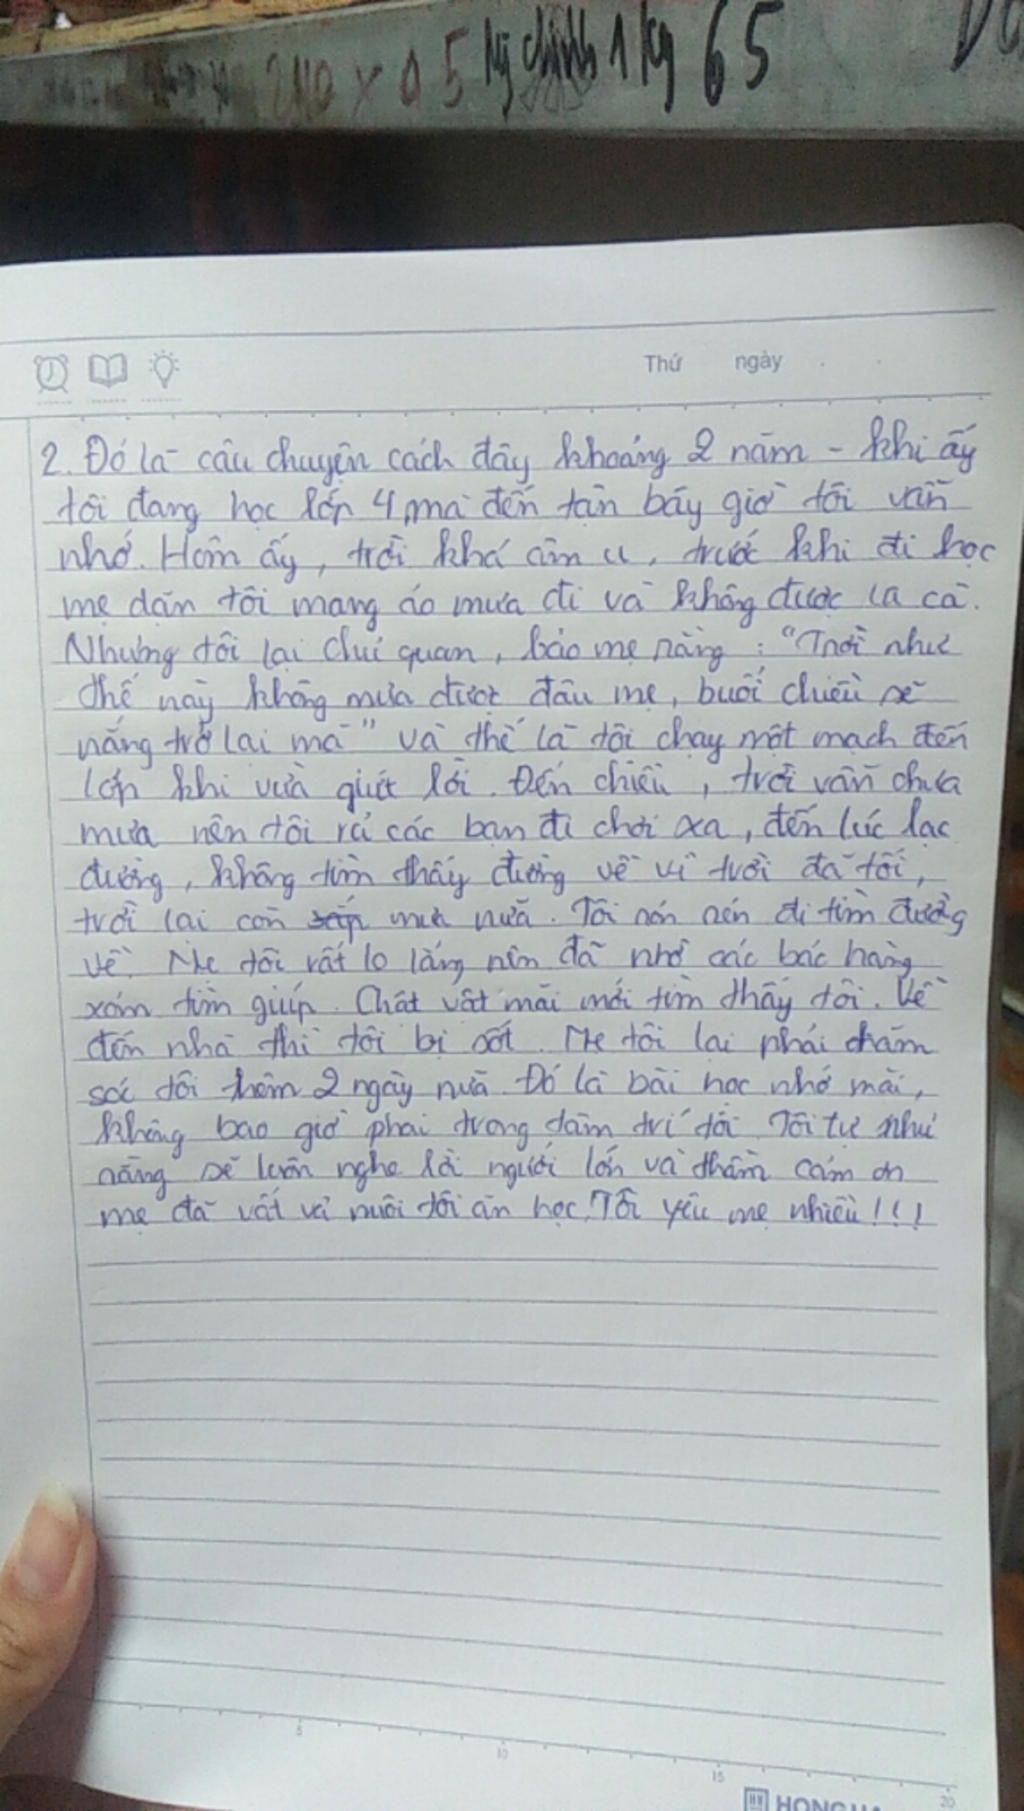 210 x 0 5 Mỳ chính 1 kg 65
Thứ ngày
2. Đó là câu chuyện cách đây khoảng 2 năm - khi ấy
tôi đang học lớp 4, mà đến tận bây giờ tôi vẫn
nhớ. Hôm ấy, trời khá âm u, trước khi đi học
mẹ dặn tôi mang áo mưa đi và không được la cà.
Nhưng tôi lại chủ quan, bảo mẹ rằng: "Trời như
thế này không mưa được đâu mẹ, buổi chiều sẽ
nắng trở lại mà" và thế là tôi chạy một mạch đến
lớp khi vừa dứt lời. Đến chiều, trời vẫn chưa
mưa nên tôi rủ các bạn đi chơi xa, đến lúc lạc
đường, không tìm thấy đường về vì trời đã tối,
trời lại còn mưa nữa. Tôi nón nén đi tìm đường
về. Mẹ tôi rất lo lắng nên đã nhờ các bác hàng
xóm tìm giúp. Chật vật mãi mới tìm thấy tôi. Về
đến nhà thì tôi bị sốt. Mẹ tôi lại phải chăm
sóc tôi thêm 2 ngày nữa. Đó là bài học nhớ mãi,
không bao giờ phai trong tâm trí tôi. Tôi tự nhủ
rằng sẽ luôn nghe lời người lớn và thầm cảm ơn
mẹ đã vất vả nuôi tôi ăn học. Tôi yêu mẹ nhiều!!!
5 10 15 20